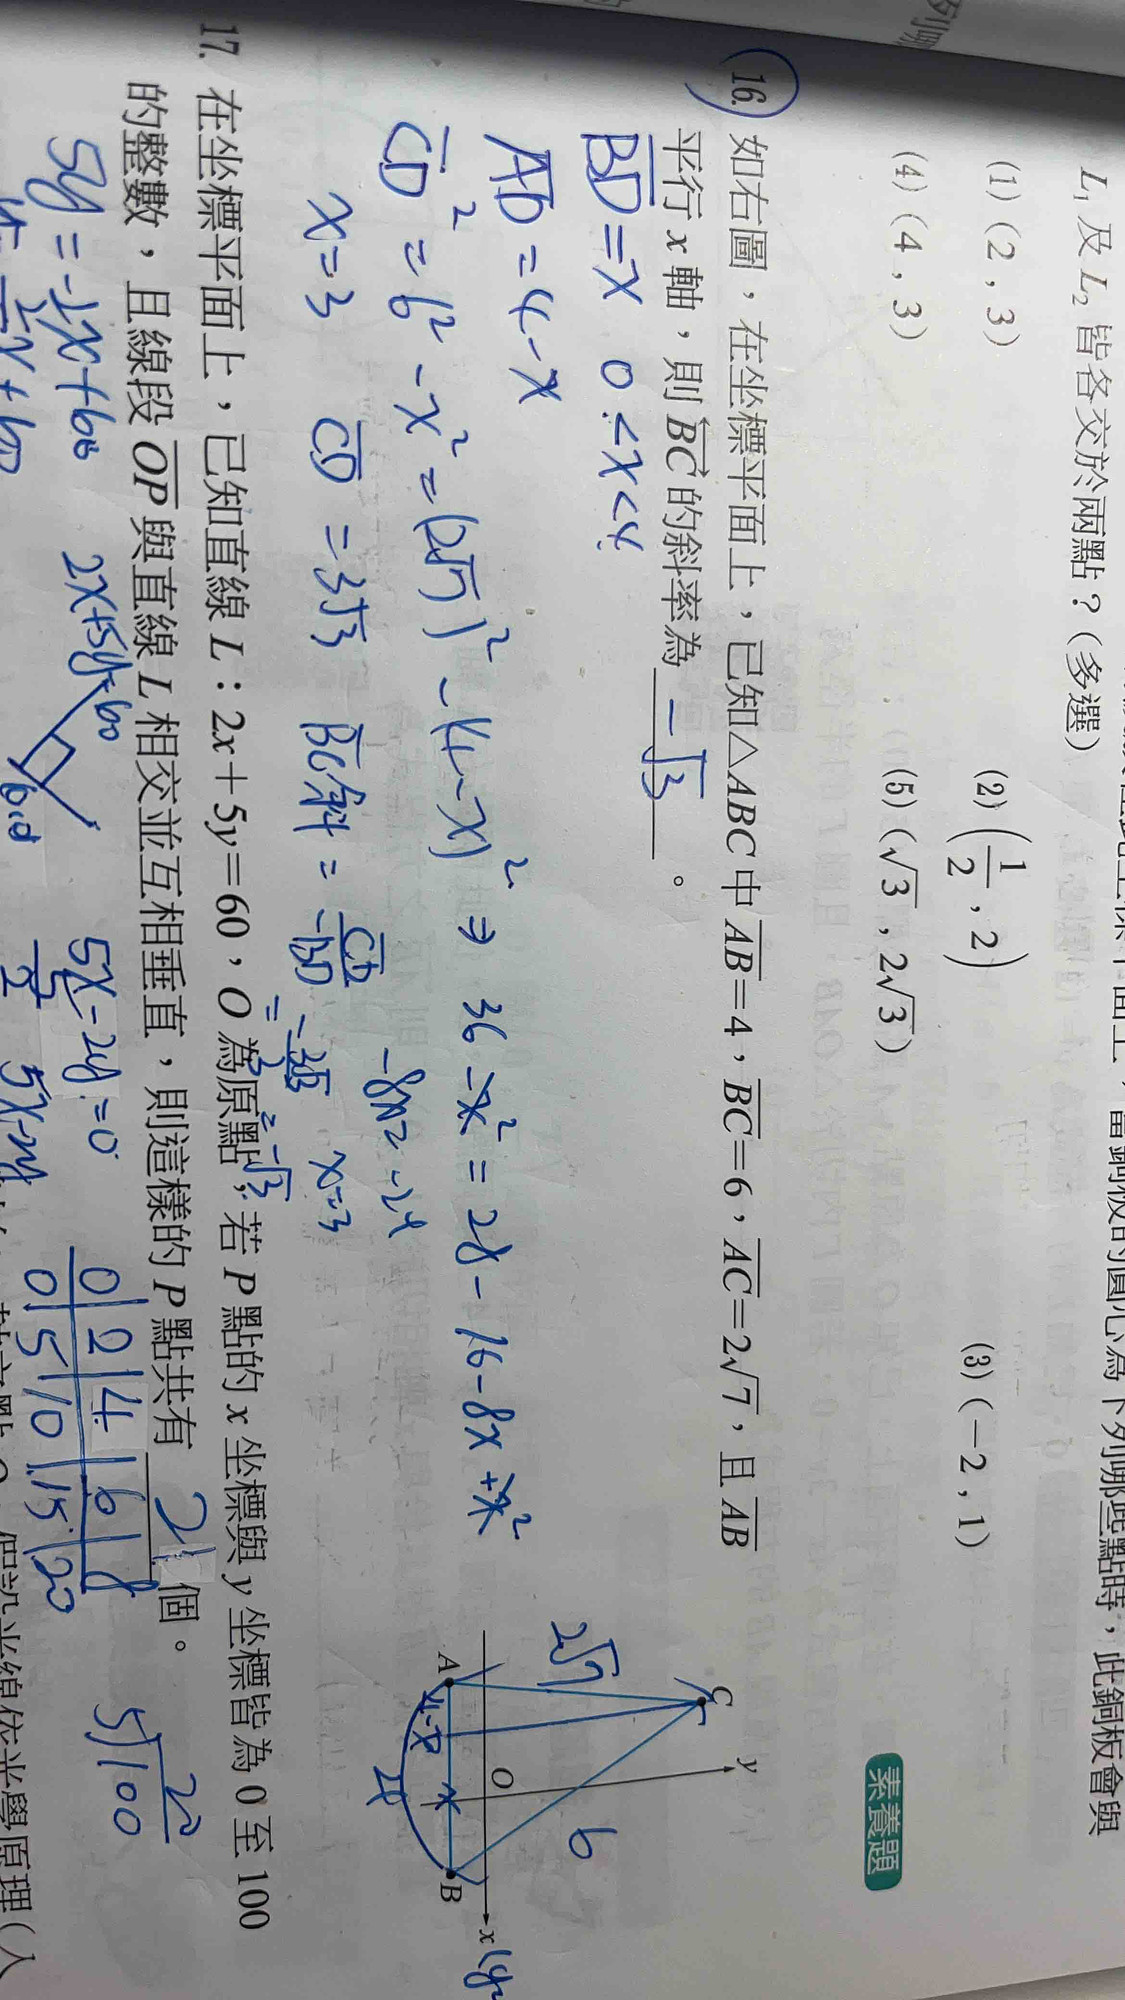 L₁ 及 L₂ 皆各交於兩點？(多選)
(1) (2 , 3)
(2) (1/2 , 2)
(3) (−2 , 1)
(4) (4 , 3)
(5) (√3 , 2√3)
素養題
16. 如右圖，在坐標平面上，已知△ABC 中 AB=4，BC=6，AC=2√7，且 AB
平行 x 軸，則 BC 的斜率為 −√3 。
BD=x 0<x<4
AD=4−x
CD²=6²−x²=(2√7)²−(4−x)² ⇒ 36−x²=28−16−8x+x²
−8x=−24
x=3 CD=3√3 BC斜= CD/−BD = −3√3/3 = −√3 x=3
C
y
2√7
6
O
A
4−x
x
B
x
17. 在坐標平面上，已知直線 L：2x＋5y=60，O 為原點，若 P 點的 x 坐標與 y 坐標皆為 0 至 100
的整數，且線段 OP 與直線 L 相交並互相垂直，則這樣的 P 點共有 21 個。
2x+5y=60
5x−2y=0
0 2 4 6 8
0 5 10 15 20
20
5)100